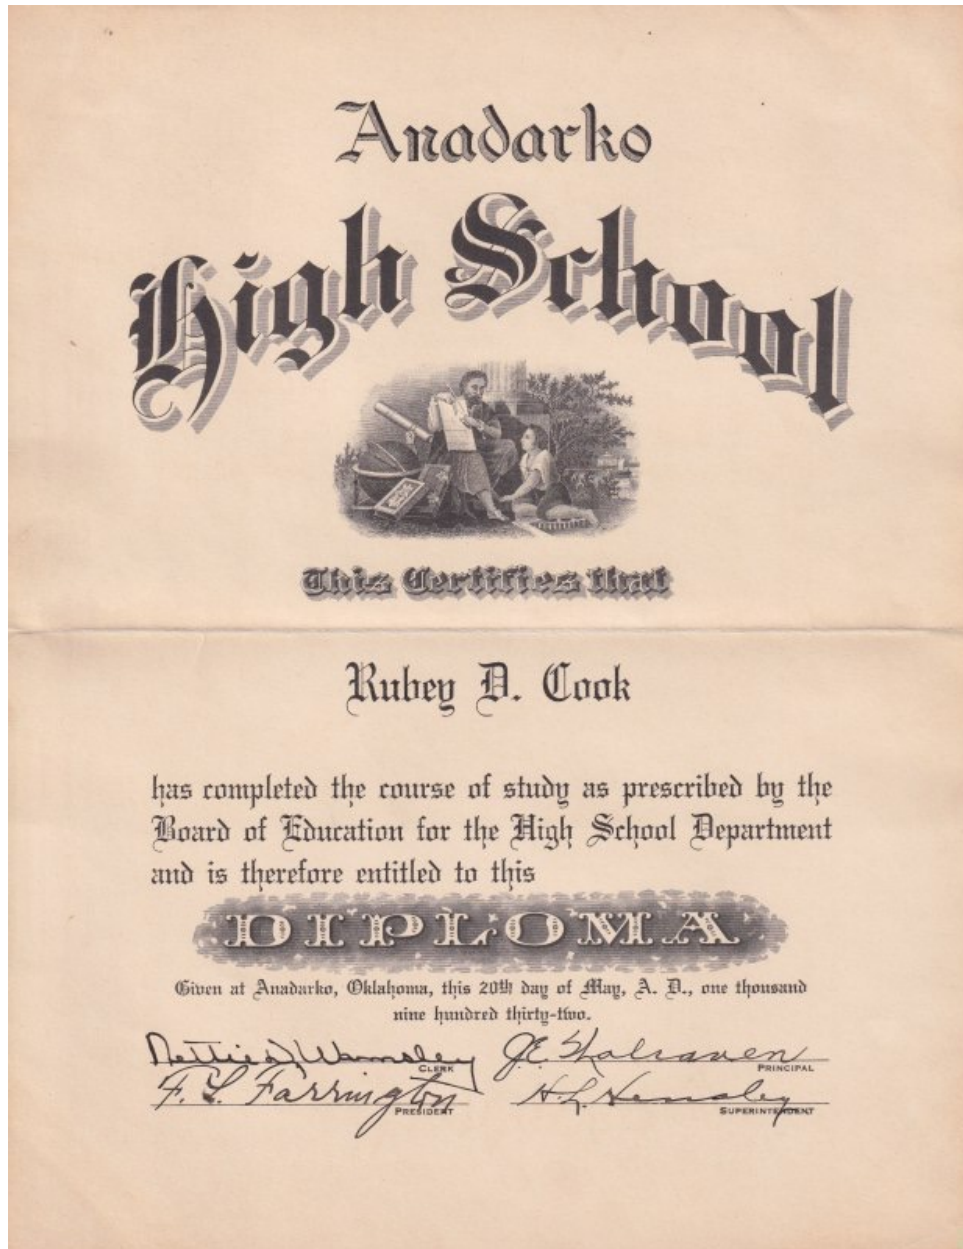 Anadarko
High School
This Certifies that
Rubey D. Cook
has completed the course of study as prescribed by the
Board of Education for the High School Department
and is therefore entitled to this
DIPLOMA
Given at Anadarko, Oklahoma, this 20th day of May, A. D., one thousand
nine hundred thirty-two.
Nettie Wamsley J.E. Walraven
CLERK PRINCIPAL
F. L. Farrington H. L. Hensley
PRESIDENT SUPERINTENDENT